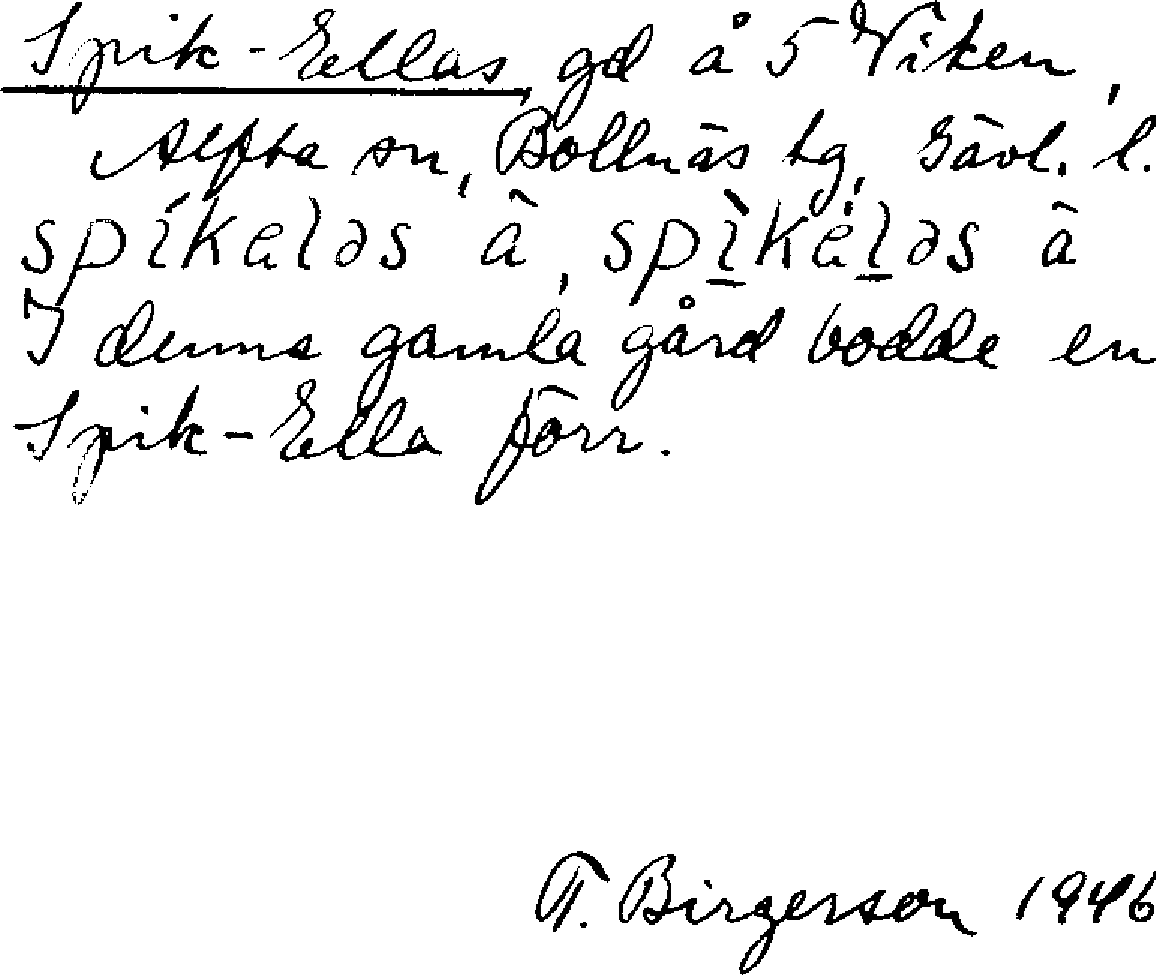 Spik-Ellas, gd å 5 Viken,
Alfta sn, Bollnäs tg, Gävl. l.
spíkeləs ä, spìkéləs ä
I denna gamla gård bodde en
Spik-Ella förr.
T. Birgerson 1946